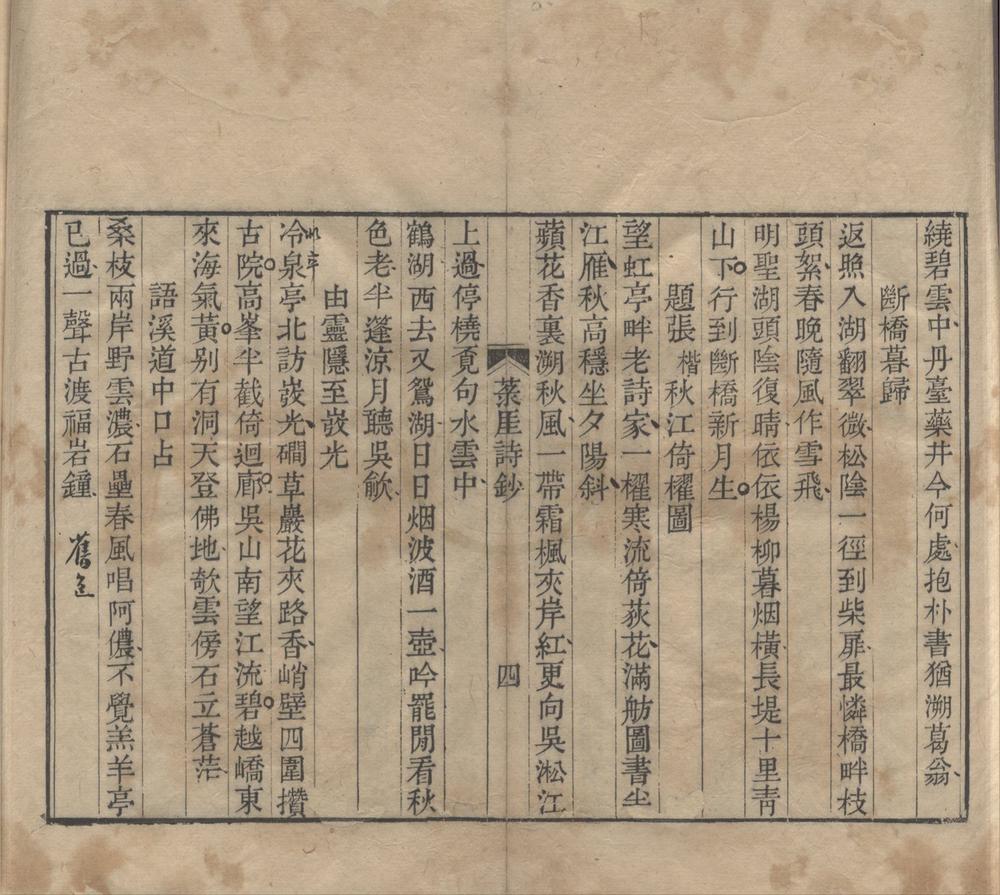 繞碧雲中丹臺藥井今何處抱朴書猶溯葛翁
斷橋暮歸
返照入湖翻翠微松陰一徑到柴扉最憐橋畔枝
頭絮春晚隨風作雪飛
明聖湖頭陰復晴依依楊柳暮烟橫長堤十里青
山下行到斷橋新月生
題張楷秋江倚櫂圖
望虹亭畔老詩家一櫂寒流倚荻花滿舫圖書尘
江雁秋高穩坐夕陽斜
蘋花香裏溯秋風一帶霜楓夾岸紅更向吳淞江
菉厓詩鈔
四
上過停橈覓句水雲中
鶴湖西去又鴛湖日日烟波酒一壺吟罷閒看秋
色老半篷涼月聽吳歈
由靈隱至韜光
冷泉亭北訪韜光磵草巖花夾路香峭壁四圍攢
古院高峯半截倚迴廊吳山南望江流碧越嶠東
來海氣黃别有洞天登佛地欹雲傍石立蒼茫
語溪道中口占
桑枝兩岸野雲濃石壘春風唱阿儂不覺羔羊亭
已過一聲古渡福岩鐘